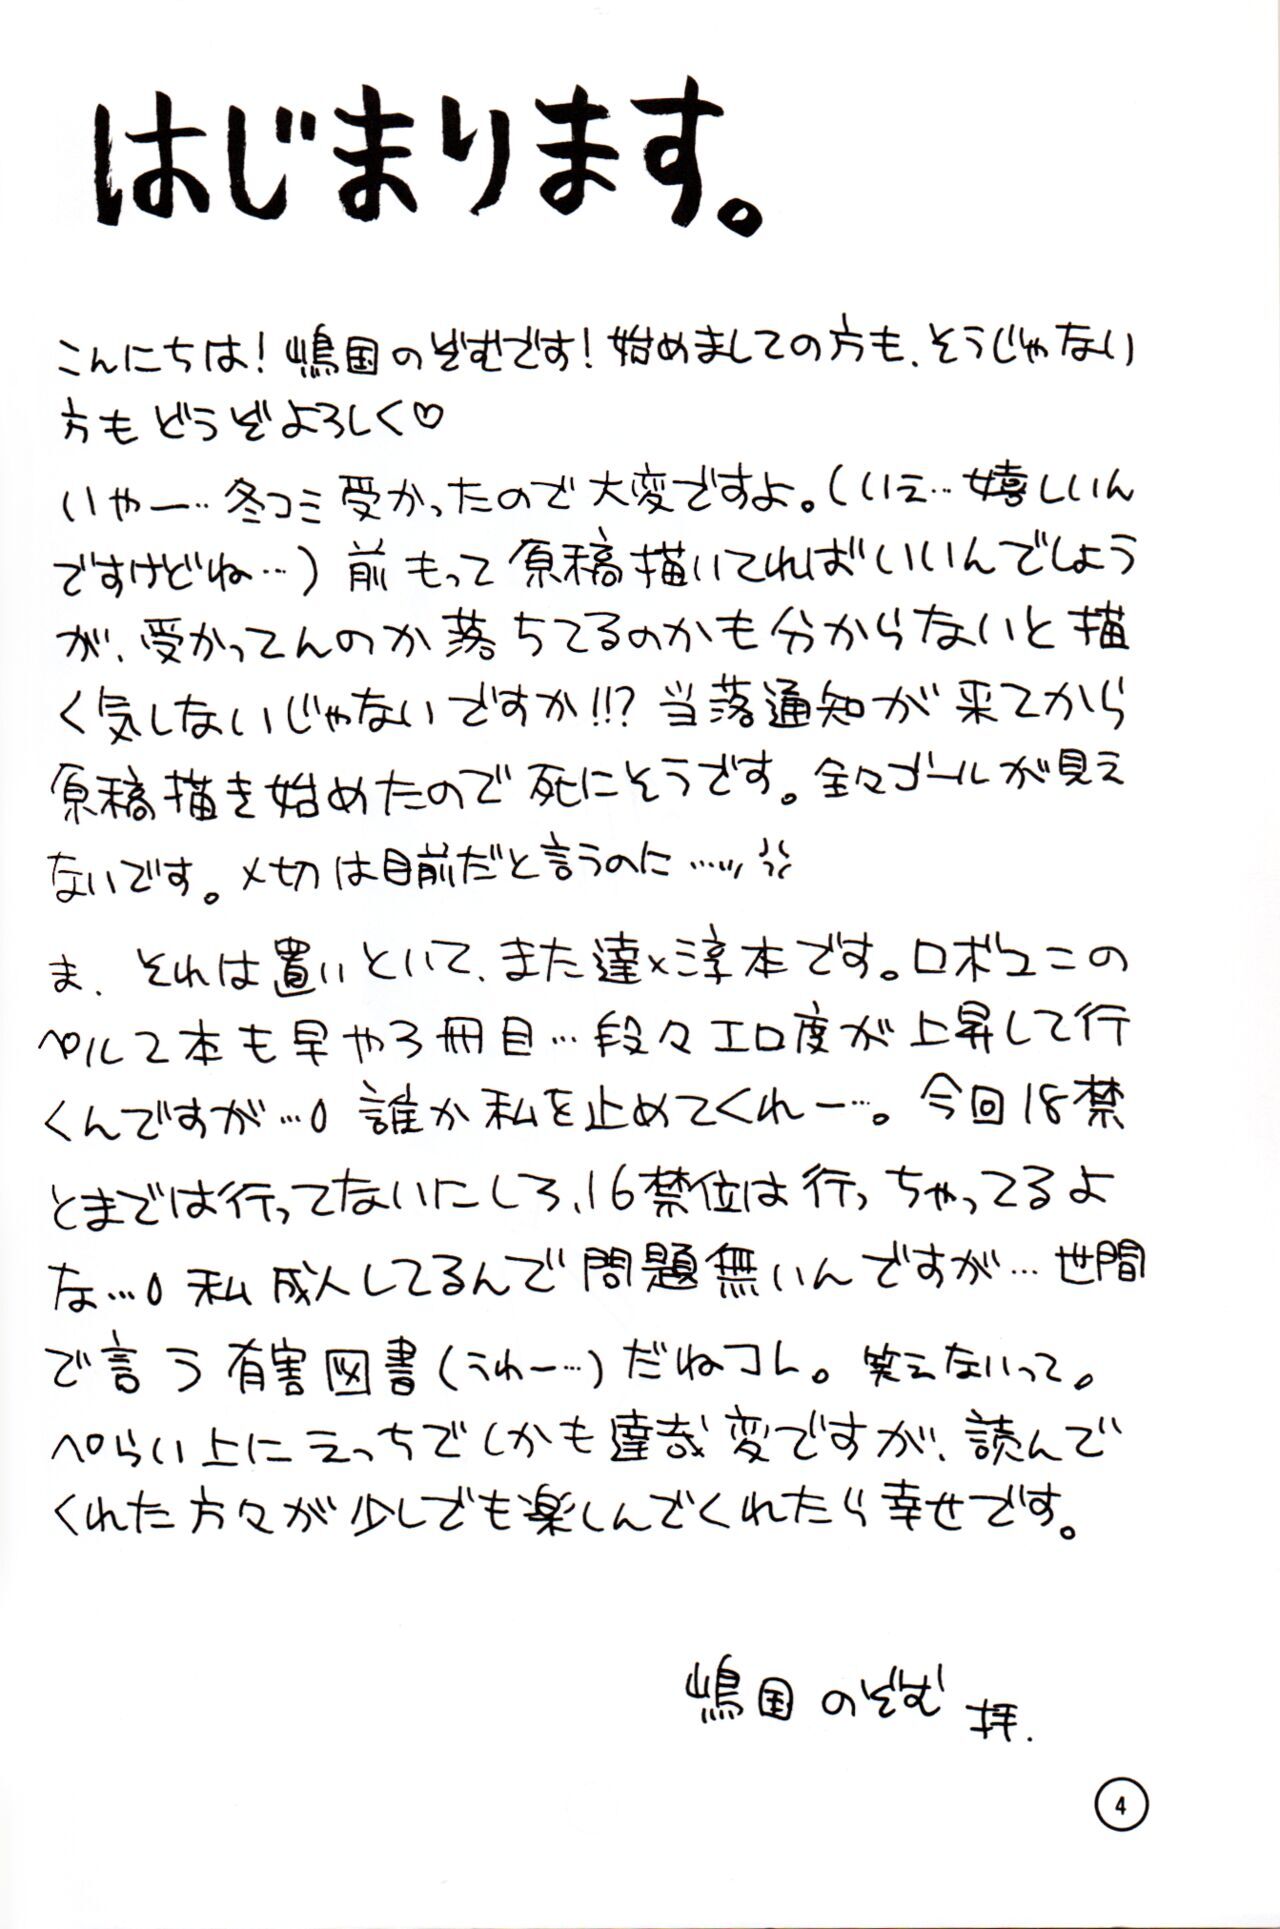 はじまります。
こんにちは！嶋国のぞむです！始めましての方も、そうじゃない
方もどうぞよろしく♡
いやー…冬コミ受かったので大変ですよ。（いえ…嬉しいん
ですけどね…）前もって原稿描いてればいいんでしょう
が、受かってんのか落ちてるのかも分からないと描
く気しないじゃないですか!!?当落通知が来てから
原稿描き始めたので死にそうです。全々ゴールが見え
ないです。〆切は目前だと言うのに……ッ
ま、それは置いといて、また達×淳本です。ロボユニの
ペルソ本も早や3冊目…段々エロ度が上昇して行
くんですが…。誰か私を止めてくれー…。今回18禁
とまでは行ってないにしろ、16禁位は行っちゃってるよ
な…。私成人してるんで問題無いんですが…世間
で言う有害図書（うわー…）だねコレ。笑えないって。
ぺらい上にえっちでしかも達哉変ですが、読んで
くれた方々が少しでも楽しんでくれたら幸せです。
嶋国のぞむ 拝.
4